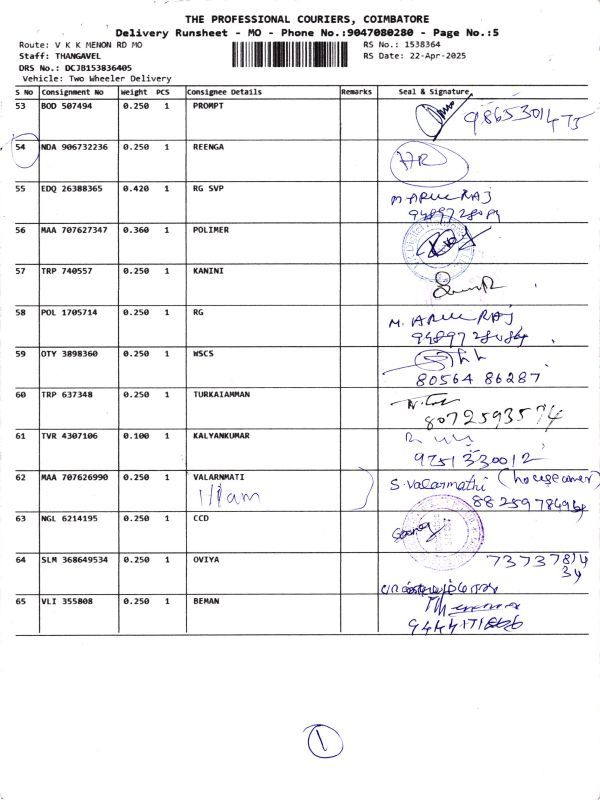 THE PROFESSIONAL COURIERS, COIMBATORE
Delivery Runsheet - MO - Phone No.:9047080280 - Page No.:5
Route: V K K MENON RD MO RS No.: 1538364
Staff: THANGAVEL RS Date: 22-Apr-2025
DRS No.: DCJB153836405
Vehicle: Two Wheeler Delivery
S No Consignment No Weight PCS Consignee Details Remarks Seal & Signature
53 BOD 507494 0.250 1 PROMPT
54 NDA 906732236 0.250 1 REENGA HR
55 EDQ 26388365 0.420 1 RG SVP M ARUL RAJ
56 MAA 707627347 0.360 1 POLIMER
57 TRP 740557 0.250 1 KANINI
58 POL 1705714 0.250 1 RG M. ARUL RAJ
59 OTY 3898360 0.250 1 WSCS
80564 86287
60 TRP 637348 0.250 1 TURKAIAMMAN
8072593574
61 TVR 4307106 0.100 1 KALYANKUMAR
9751330012
62 MAA 707626990 0.250 1 VALARNMATI S. Valarmathi
63 NGL 6214195 0.250 1 CCD
64 SLM 368649534 0.250 1 OVIYA
65 VLI 355808 0.250 1 BEMAN
1